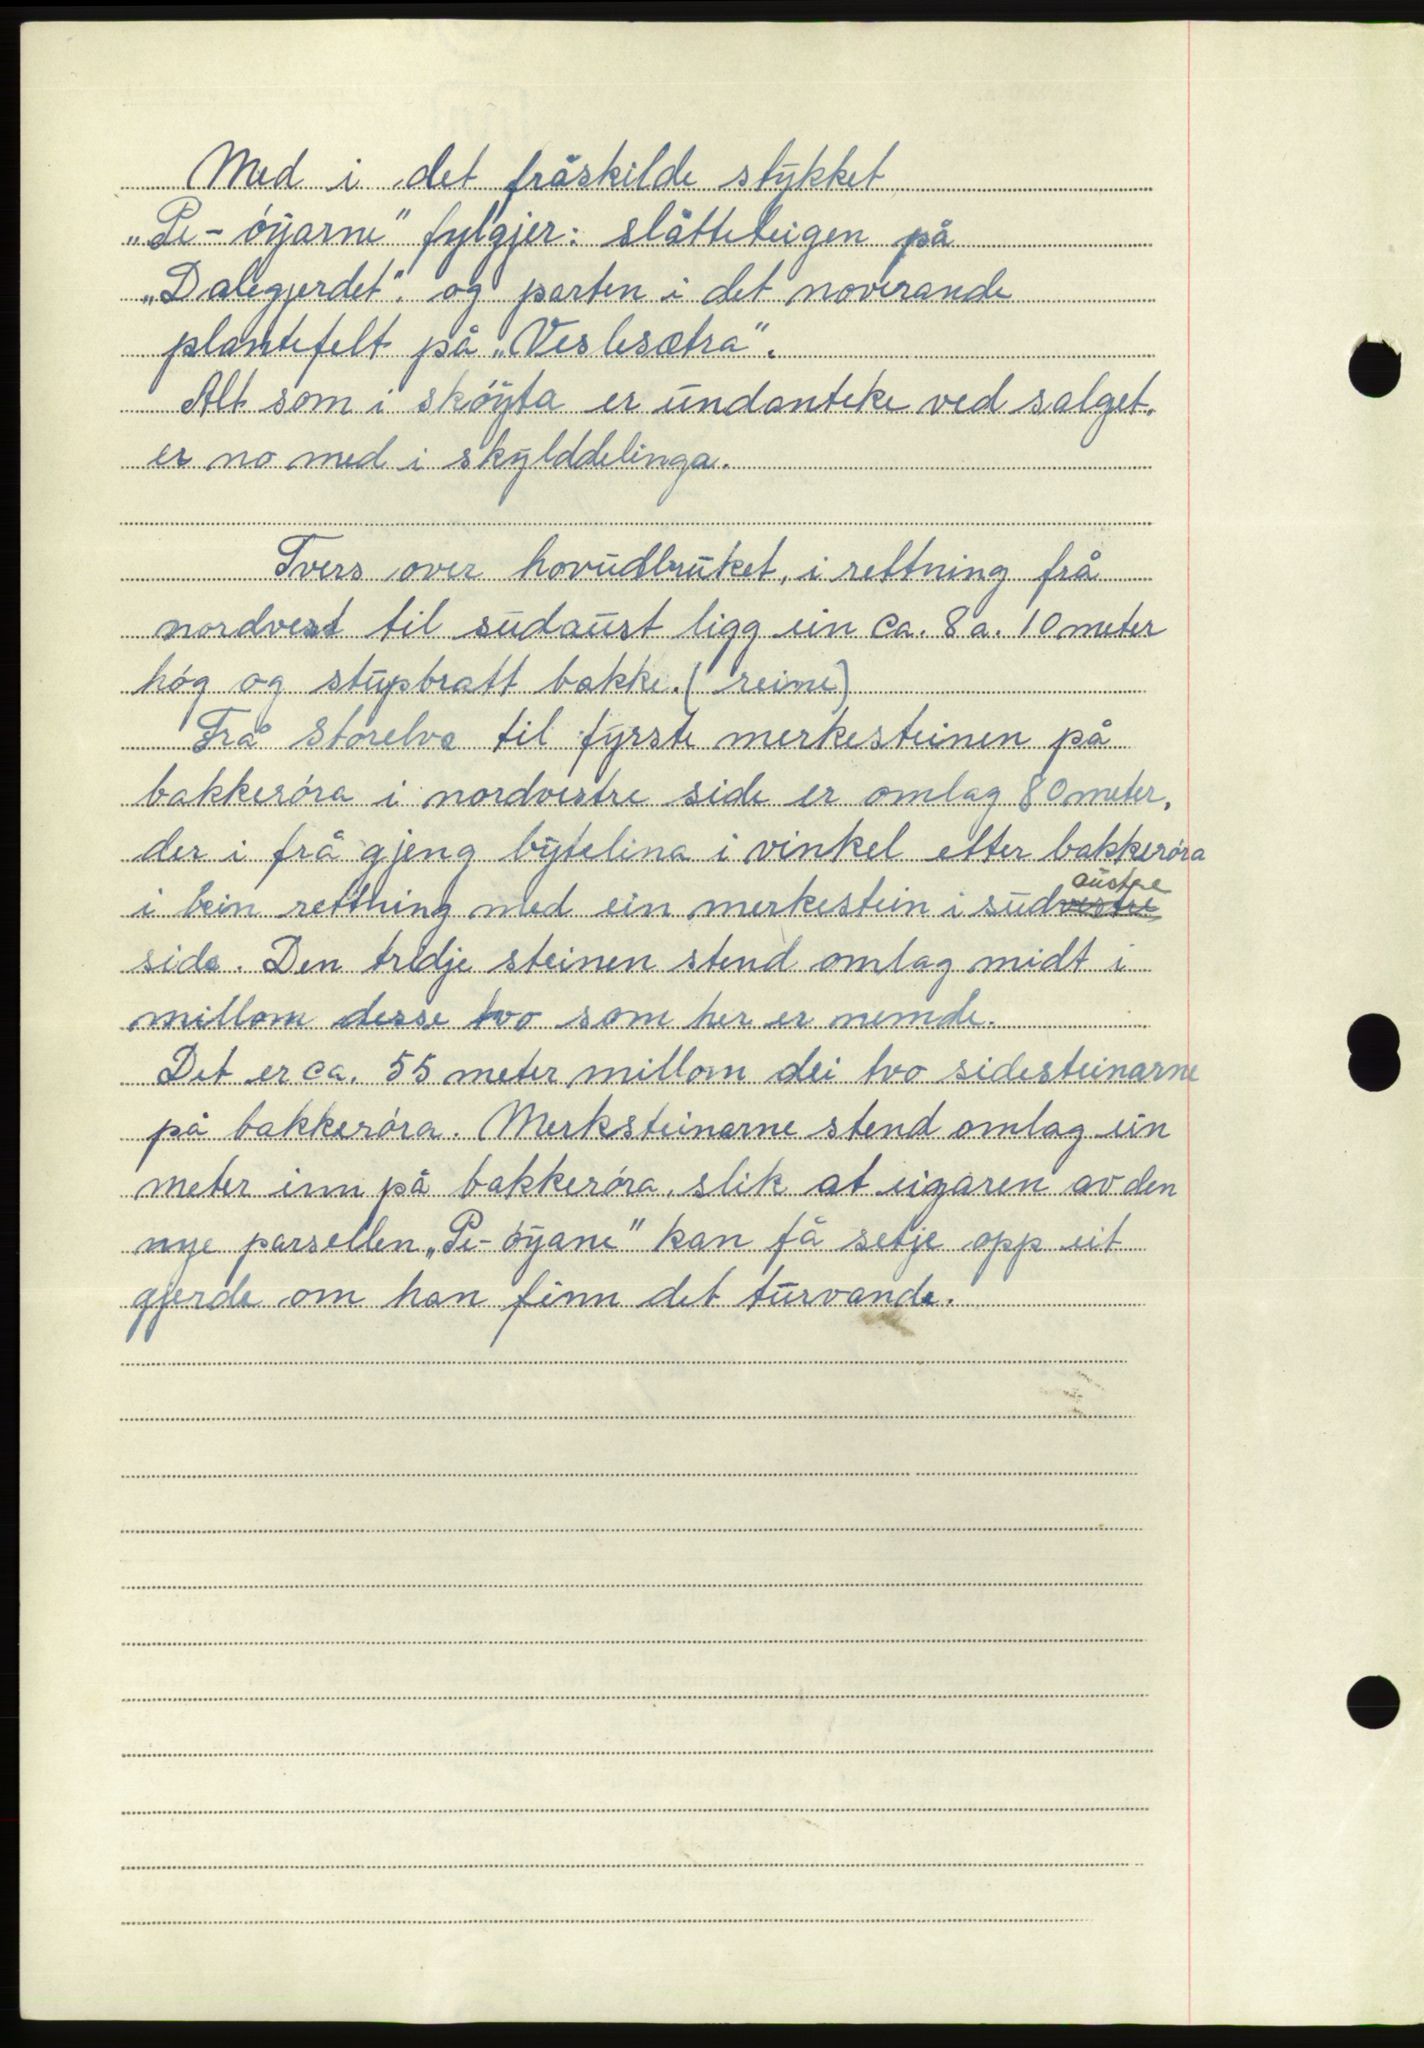 Med i det fråskilde stykket
„Pe-öyarne" fylgjer: slåtteteigen på
„Dalegjerdet". og parten i det noverande
plantefelt på „Veslesætra".
Alt som i sköyta er undanteke ved salget.
er no med i skylddelinga.
Tvers over hovudbruket, i rettning frå
nordvest til sudaust ligg ein ca. 8 a. 10 meter
hóg og stupbratt bakke. (reine)
Frå Storelva til fyrste merkesteinen på
bakkeróra i nordvestre side er omlag 80 meter,
der i frå gjeng bytelina i vinkel etter bakkeróra
i bein rettning med ein merkestein i sudvestre austre
side. Den tridje steinen stend omlag midt i
millom desse tvo som her er nemde.
Det er ca. 55 meter millom dei tvo sidesteinarne
på bakkeróra. Merksteinarne stend omlag ein
meter inn på bakkeróra, slik at eigaren av den
nye parsellen „Pe-öyane" kan få setje opp eit
gjerde om han finn det turvande.